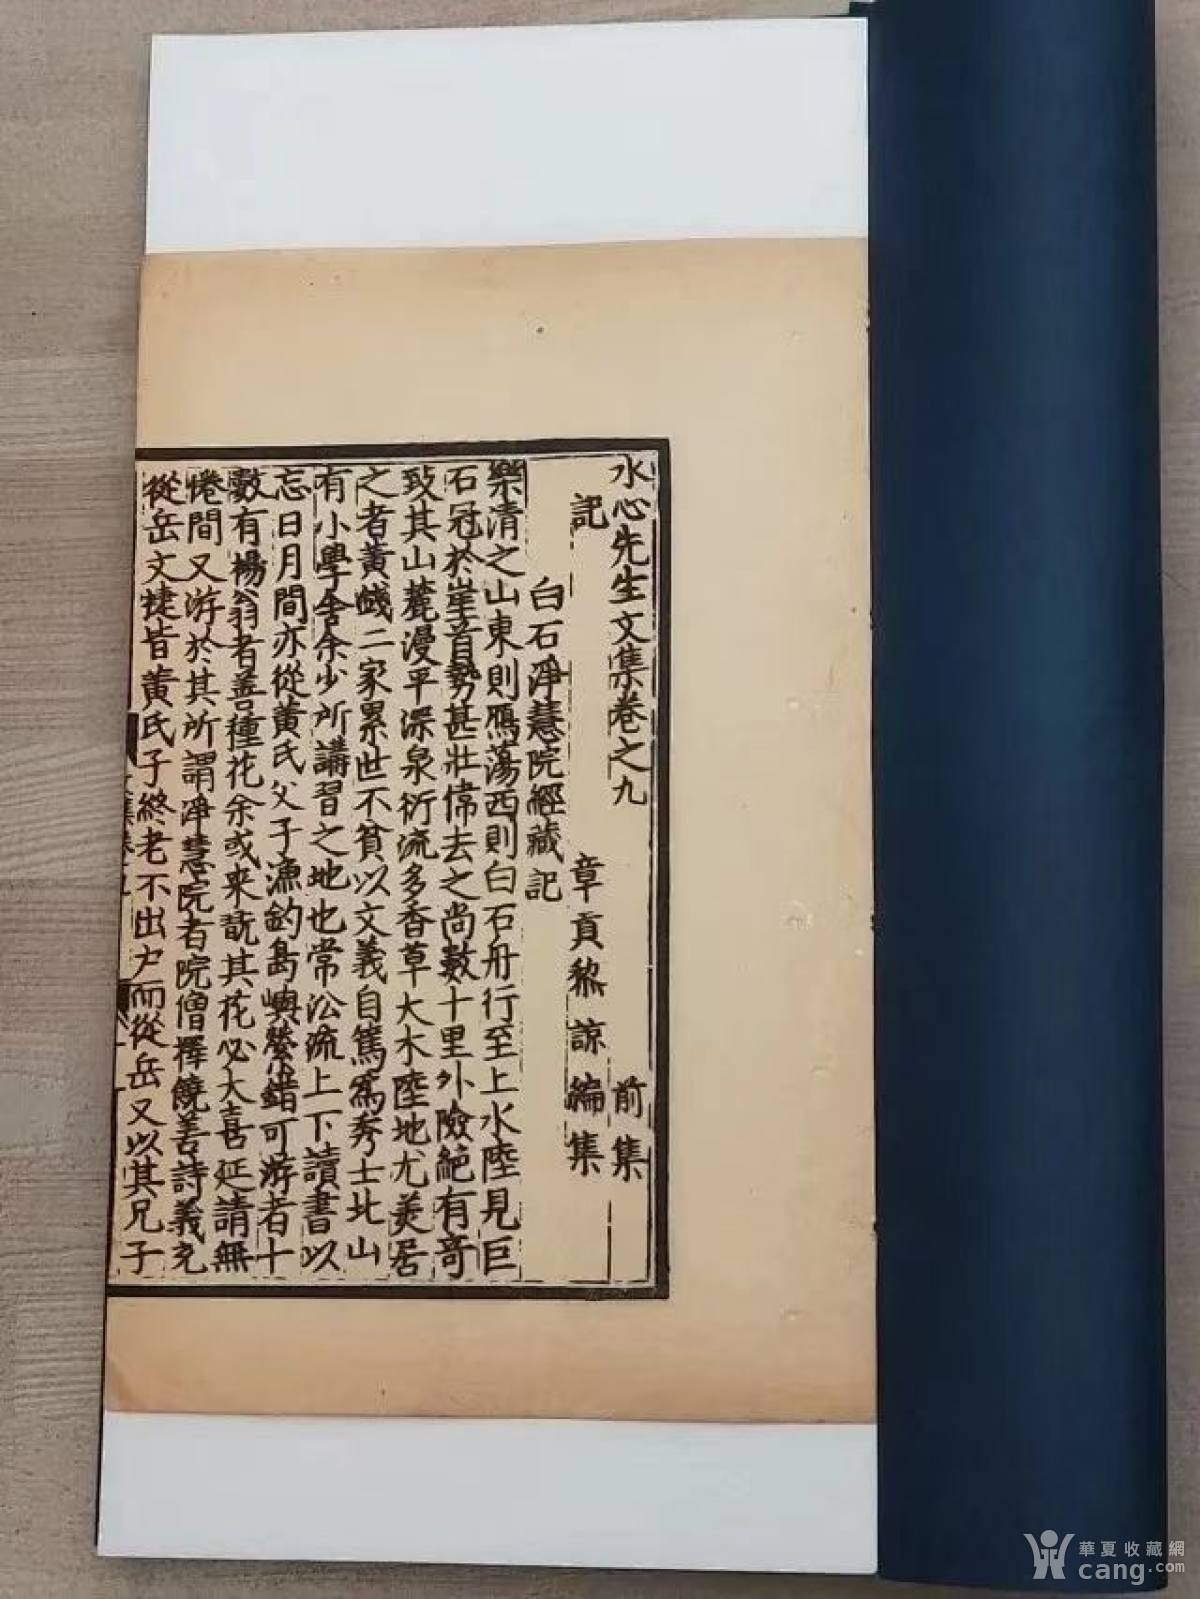 水心先生文集卷之九　前集
記　章貢黎諒編集
白石淨慧院經藏記
樂清之山東則鴈蕩西則白石舟行至上水陸見巨
石冠於崖首勢甚壯偉去之尚數十里外險絕有奇
致其山麓漫平深泉衍流多香草大木陸地尤美居
之者黃錢二家累世不貧以文義自篤為秀士北山
有小學舍余少所講習之地也常沿流上下讀書以
忘日月間亦從黃氏父子漁釣島嶼縈錯可游者十
數有楊翁者善種花余或來翫其花必大喜延請無
倦間又游於其所謂淨慧院者院僧擇饒善詩義充
從岳文捷皆黃氏子終老不出戶而從岳又以其兄子
華夏收藏網
cang.com